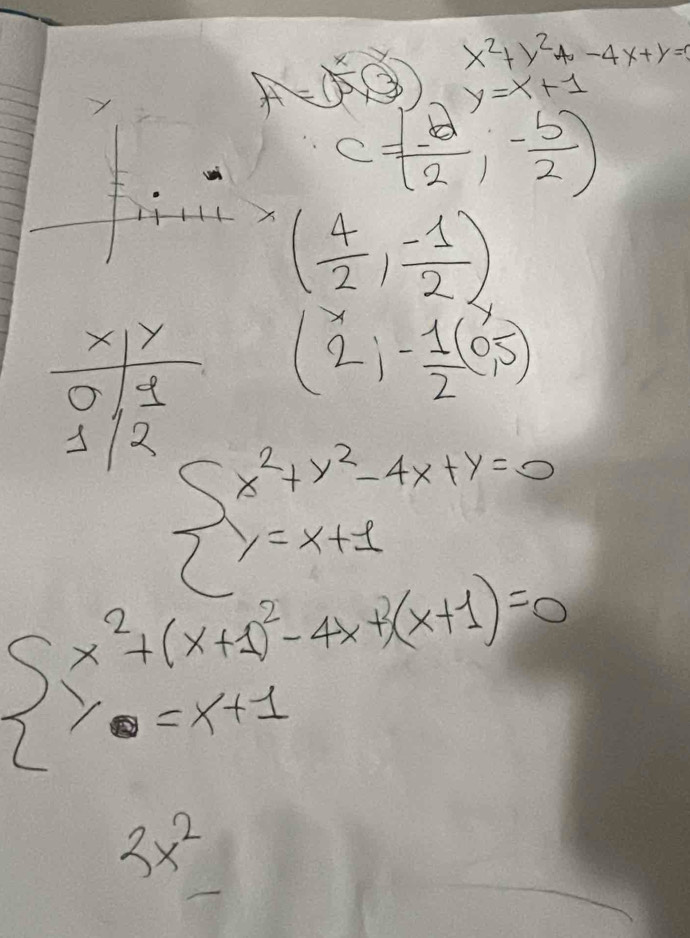 x²+y² -4x+y=0
y=x+1
A=(5,3)
C=(-a/2; -b/2)
y
x
(4/2, -1/2)
x y
(2; -1/2 (0,5)
x | y
0 | 1
1 | 2
{x²+y²-4x+y=0
y=x+1
{x²+(x+1)²-4x+(x+1)=0
y=x+1
2x²